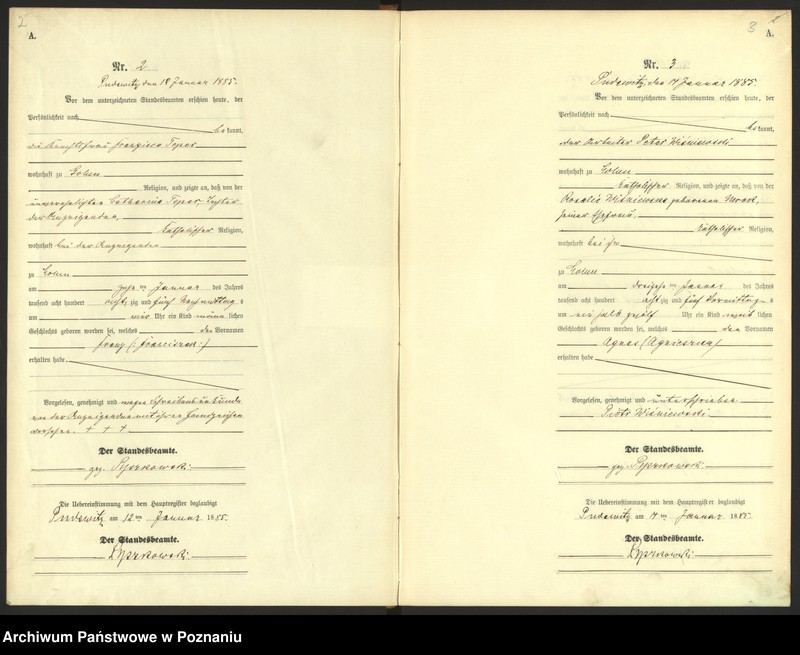 2
A.
Nr. 2
Pudewitz, den 12 Januar 1885.
Vor dem unterzeichneten Standesbeamten erschien heute, der
Persönlichkeit nach
be kannt,
die
wohnhaft zu
Religion, und zeigte an, daß von der
unverehelichten Catharina
der Anzeigenden,
katholischer Religion,
wohnhaft bei der Anzeigenden
zu
am ten Januar des Jahres
tausend acht hundert acht zig und fünf Nachmittag s
um vier Uhr ein Kind männ lichen
Geschlechts geboren worden sei, welches den Vornamen
Franz (: Franciszek :)
erhalten habe.
Vorgelesen, genehmigt und wegen Schreibensunkunde
von der Anzeigenden mit ihren Handzeichen
versehen. + + +
Der Standesbeamte.
gez.
Die Uebereinstimmung mit dem Hauptregister beglaubigt
Pudewitz am 12 ten Januar 1885.
Der Standesbeamte.
3
2
A.
Nr. 3
Pudewitz, den 17 Januar 1885.
Vor dem unterzeichneten Standesbeamten erschien heute, der
Persönlichkeit nach
be kannt,
der Arbeiter Peter Wiśniewski
wohnhaft zu
katholischer Religion, und zeigte an, daß von der
Rosalie Wiśniewska geborenen
seiner Ehefrau
katholischer Religion,
wohnhaft bei ihm
zu
am ten Januar des Jahres
tausend acht hundert acht zig und fünf Vormittag s
um halb zwölf Uhr ein Kind weib lichen
Geschlechts geboren worden sei, welches den Vornamen
Agnes (Agnieszka)
erhalten habe
Vorgelesen, genehmigt und unterschrieben
Piotr Wiśniewski
Der Standesbeamte.
gez.
Die Uebereinstimmung mit dem Hauptregister beglaubigt
Pudewitz am 17 ten Januar 1885.
Der Standesbeamte.
Archiwum Państwowe w Poznaniu